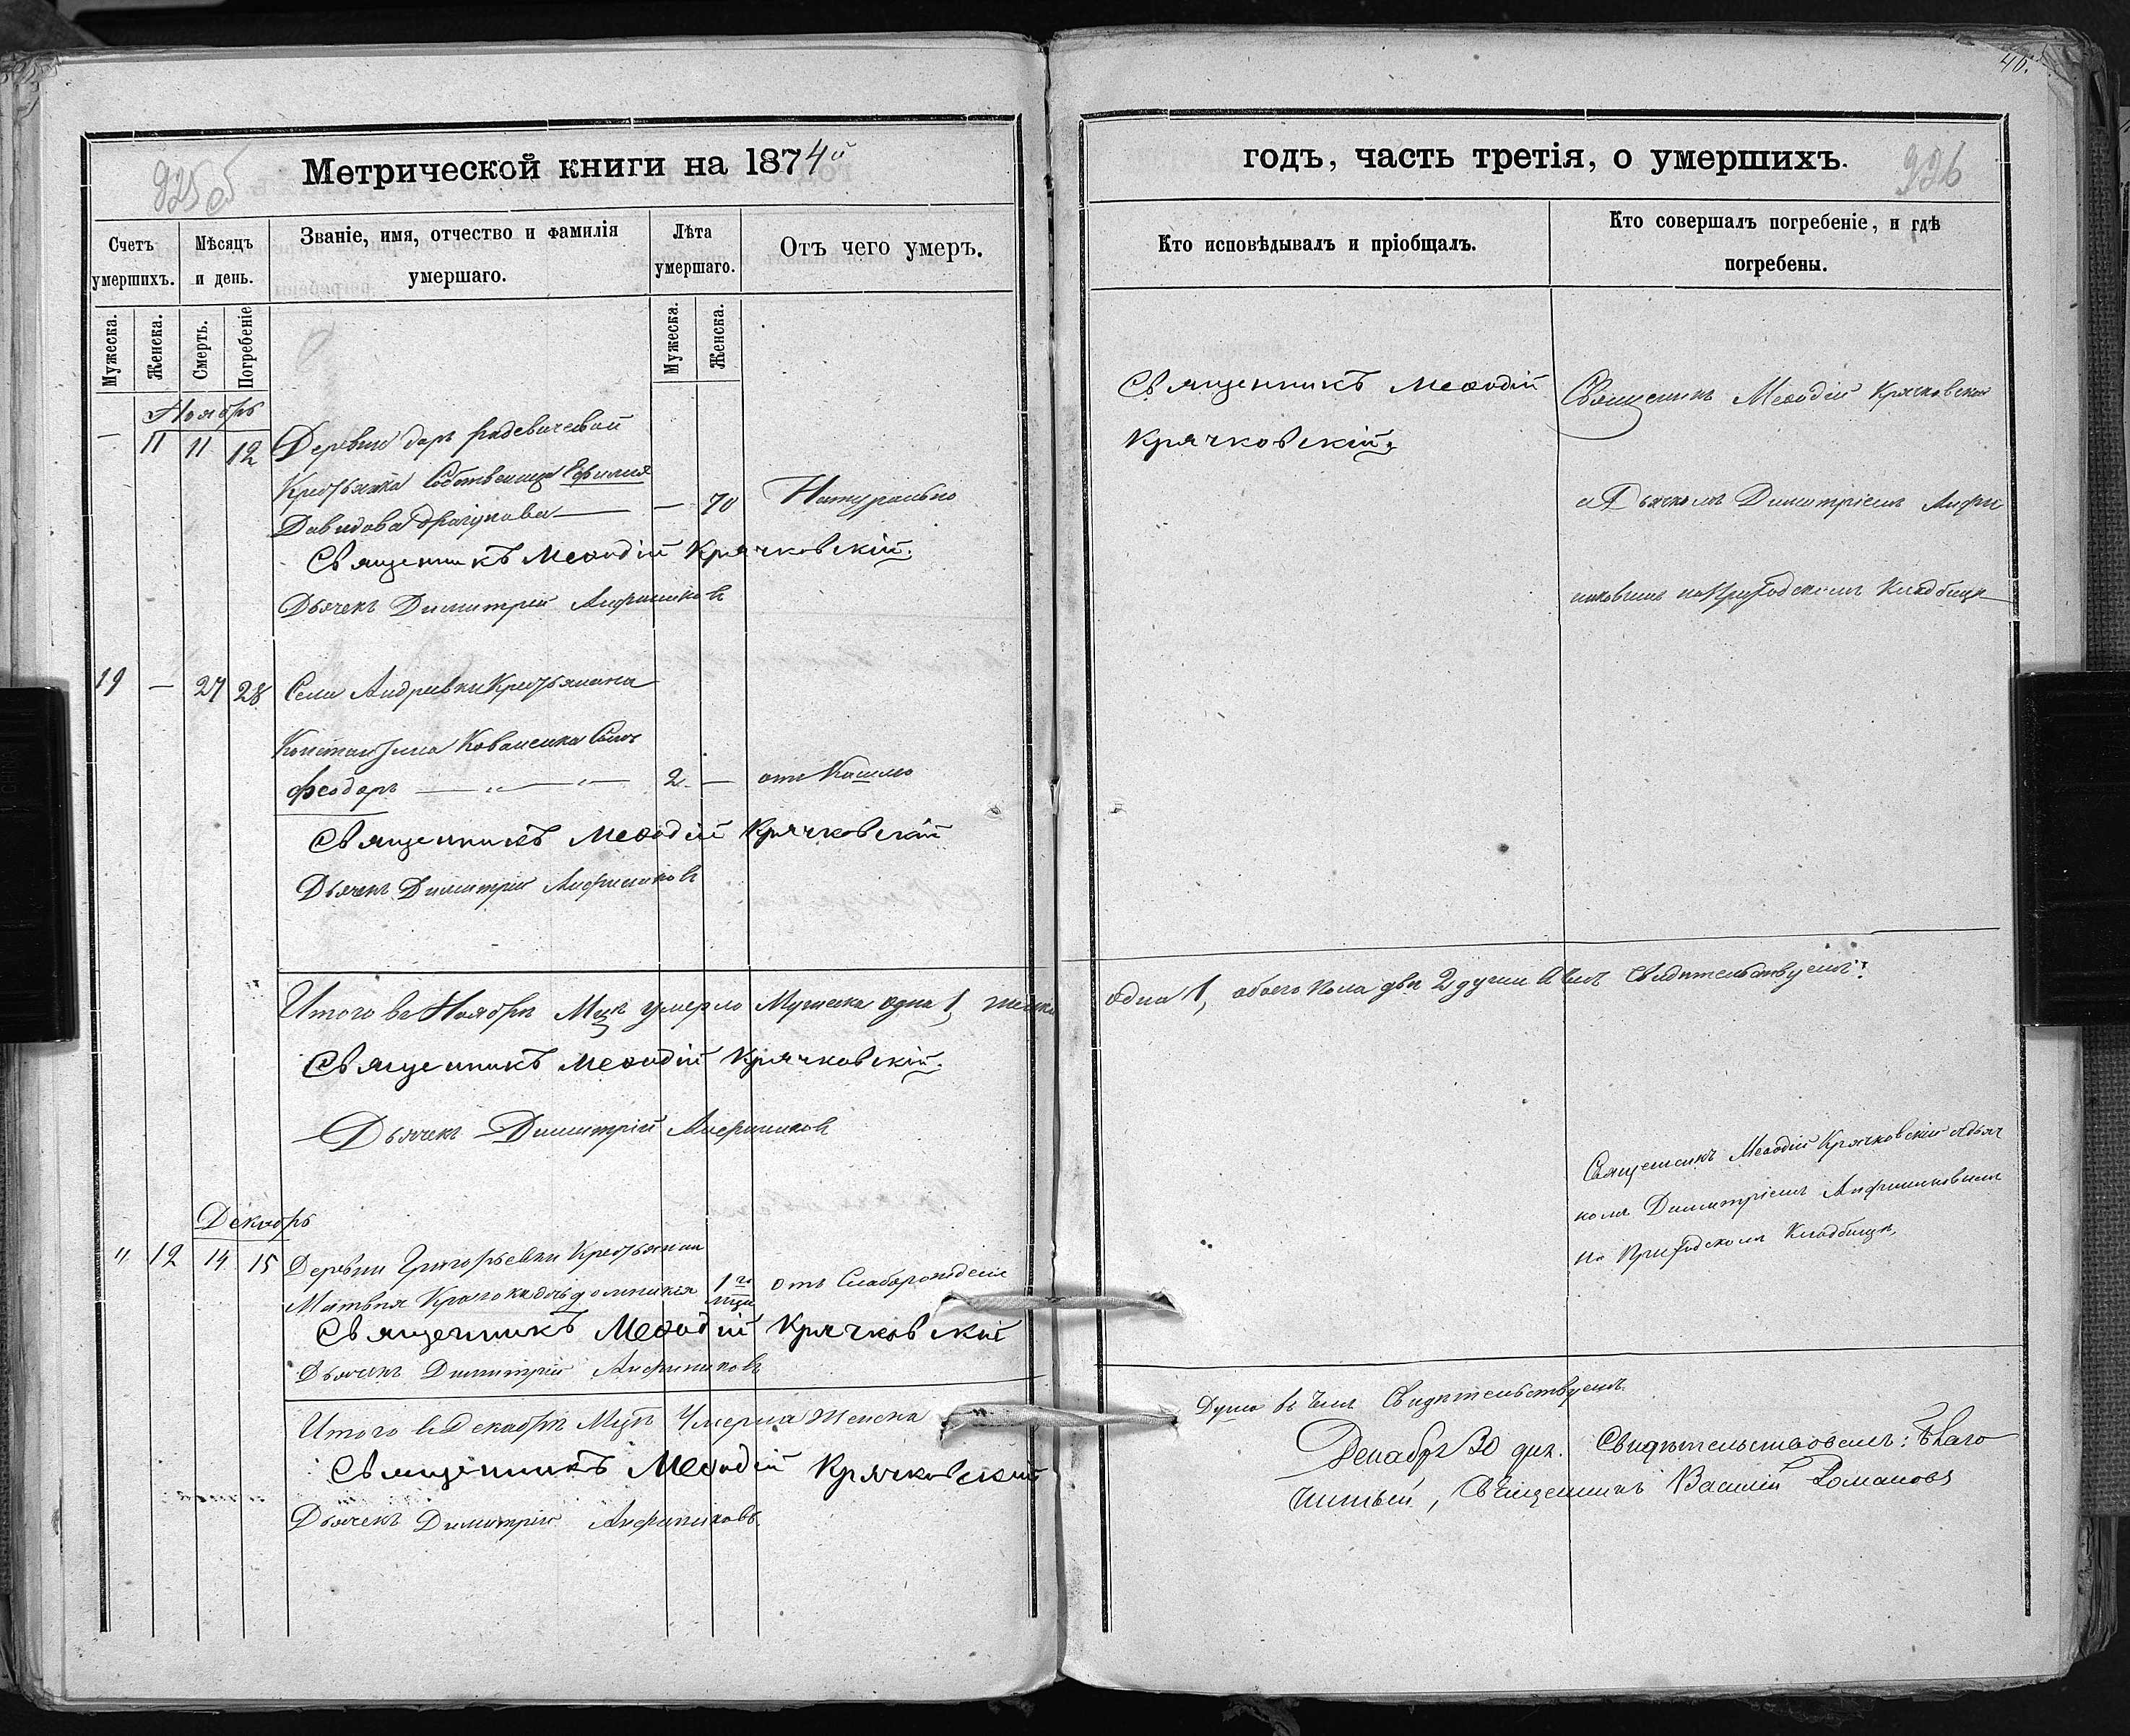 46.
925 об
Метрической книги на 1874й
Счетъ умершихъ.
Мѣсяцъ и день.
Званіе, имя, отчество и фамилія умершаго.
Лѣта умершаго.
Отъ чего умеръ.
Мужеска.
Женска.
Смерть.
Погребеніе
Мужеска.
Женска.
Ноябрь
— 11 11 12 Деревни
Крестьянка Собственица Ефимія
Давидова — — 70 Натурально
Священникъ Меѳодій Крячковскій.
Дьячекъ Димитрій
19 — 27 28 Села Андреевки Крестьянина
Константина Коваленка Сынъ
Феодоръ — „ — „ — 2 — отъ Кашлю
Священникъ Меѳодій Крячковскій
Дьячекъ Димитрій
Итого въ Ноябрѣ Мцѣ умерло Мужеска одна 1, женска
Священникъ Меѳодій Крячковскій.
Дьячекъ Димитрій
Декабрь
„ 12 14 15 Деревни Григорьевки Крестьянина
Матвея дочь 1го мца отъ Слаборожденія
Священникъ Меѳодій Крячковскій
Дьячекъ Димитрій
Итого въ Декабрѣ Мцѣ Умерла Женска
Священникъ Меѳодій Крячковскій
Дьячекъ Димитрій
годъ, часть третія, о умершихъ.
926
Кто исповѣдывалъ и пріобщалъ.
Кто совершалъ погребеніе, и гдѣ погребены.
Священникъ Меѳодій
Крячковскій.
Священникъ Меѳодій Крячковскій
съ Дьячкомъ Димитріемъ
на Приходскомъ Кладбищѣ
одна 1, обоего пола двѣ 2 души въ чемъ свидѣтельствуемъ:
Священникъ Меѳодій Крячковскій съ дьяч
комъ Димитріемъ
на Приходскомъ Кладбищѣ,
Душа въ чемъ Свидѣтельствуемъ.
Декабря 30 дня. Свидѣтельствовалъ: Благо
чинный, Священникъ Василій Романовъ